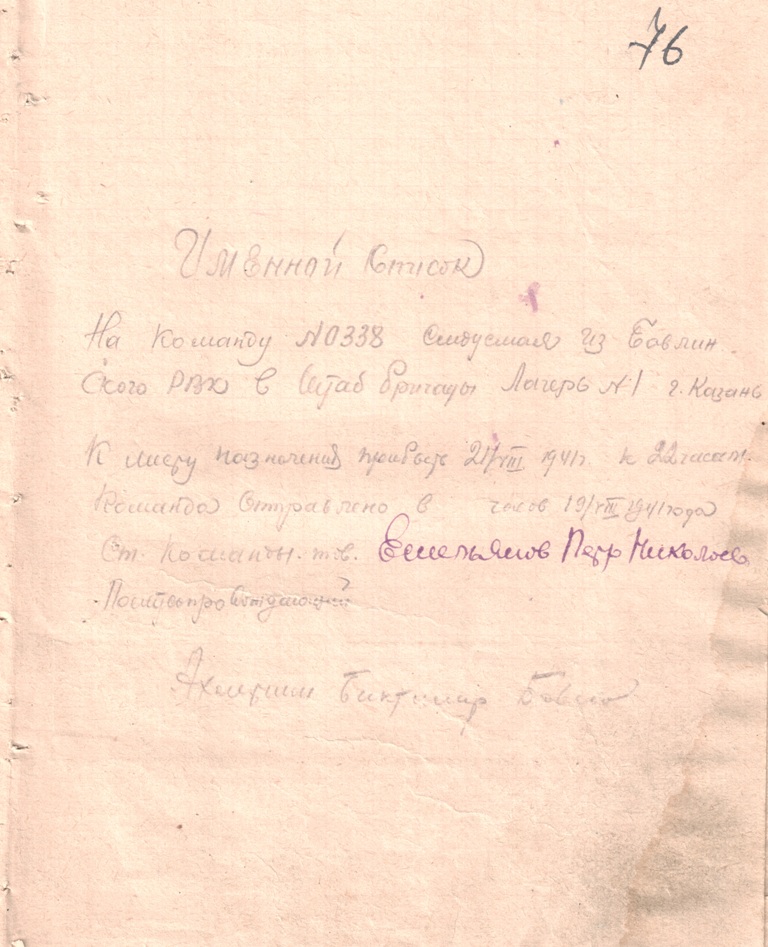 76
Именной Список
На команду №338 следуемая из Бавлин
ского РВК в Штаб бригады Лагерь №1 г. Казань
К месту назначения прибыть 21/VIII 1941г. к 22 часам.
Команда отправлено в часов 19/VIII 1941 года
Ст. команды. тов. Емельянов Петр Николаев
Ахметшин Биктимир